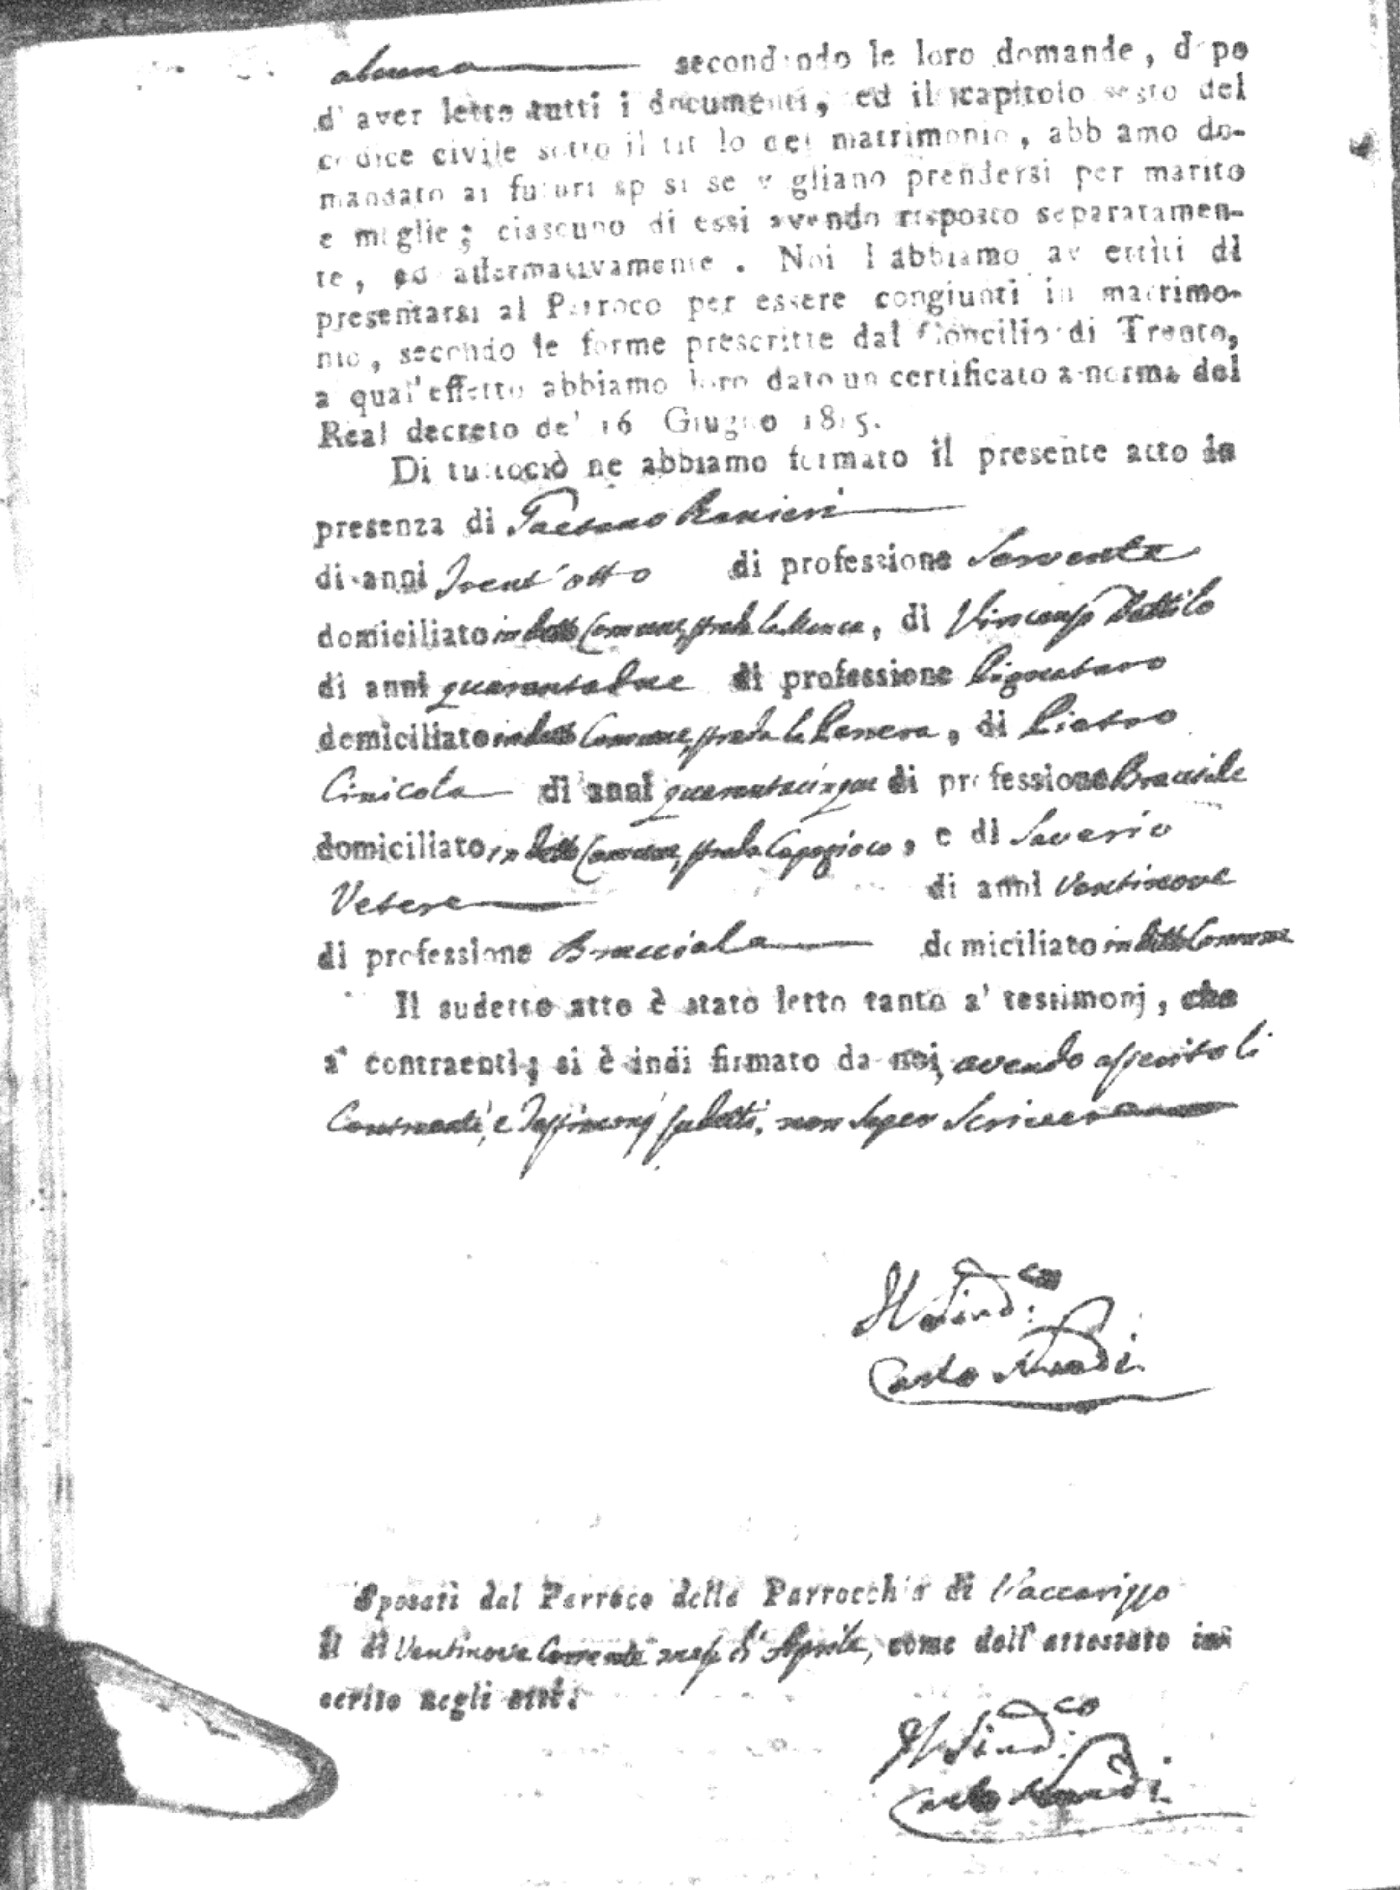 alcuna secondando le loro domande, dopo
d'aver letto tutti i documenti, ed il capitolo sesto del
codice civile sotto il titolo del matrimonio, abbiamo do-
mandato ai futuri sposi se vogliano prendersi per marito
e moglie; ciascuno di essi avendo risposto separatamen-
te, ed affermativamente. Noi l'abbiamo avvertiti di
presentarsi al Parroco per essere congiunti in matrimo-
nio, secondo le forme prescritte dal Concilio di Trento,
a qual'effetto abbiamo loro dato un certificato a norma del
Real decreto de' 16 Giugno 1815.
Di tuttociò ne abbiamo formato il presente atto in
presenza di Gaetano Ranieri
di anni Trent'otto di professione Servente
domiciliato in detto Comune, strada la , di Vincenzo Dattilo
di anni quarantadue di professione Pignataro
domiciliato in detto Comune, strada la , di Pietro
Cinicola di anni quarantacinque di professione Bracciale
domiciliato in detto Comune, strada Capogioco, e di Saverio
Vetere di anni Ventinove
di professione Bracciale domiciliato in detto Comune
Il sudetto atto è stato letto tanto a' testimonj, che
a' contraenti; si è indi firmato da noi, avendo asserito li
Contraenti, e Testimonj sudetti, non saper scrivere
Il Sind.co
Carlo
Sposati dal Parroco della Parrocchia di Vaccarizzo
Il dì Ventinove Corrente mese d'Aprile, come dall'attestato in
scrito negli atti.
Il Sind.co
Carlo